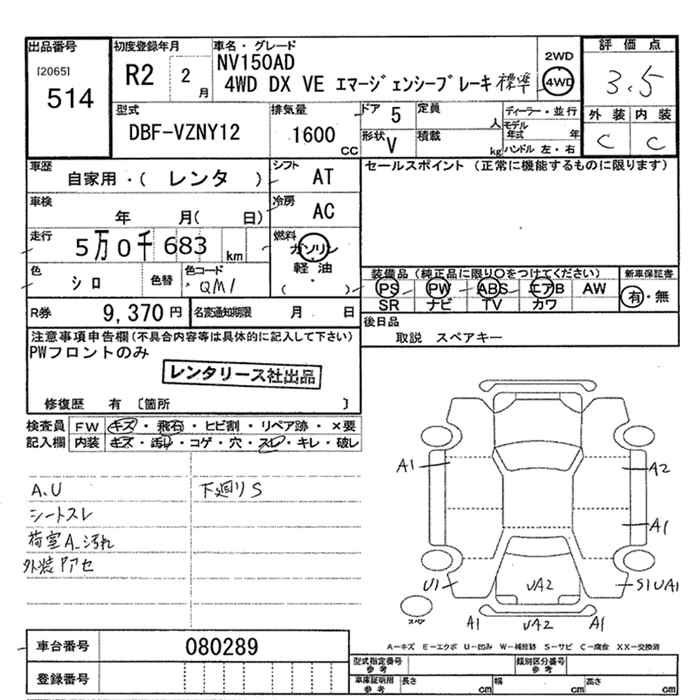 出品番号 初度登録年月 車名・グレード 評価点
[2065] R2 2月 NV150AD 2WD
514 4WD DX VE エマージェンシーブレーキ 標準 4WD 3.5
型式 排気量 ドア 5 定員 人 ディーラー・並行 外装 内装
DBF-VZNY12 1600 CC 形状 V 積載 kg モデル年式 年 ハンドル 左・右 C C
車歴 シフト セールスポイント (正常に機能するものに限ります)
自家用・( レンタ ) AT
車検 冷房
年 月( 日) AC
走行 燃料
5万0千683 km ガソリン
色 色替 色コード 軽油 装備品 (純正品に限り○をつけてください) 新車保証書
シロ QM1 ( ) PS PW ABS エアB AW 有・無
R券 9,370円 名変通知期限 月 日 SR ナビ TV カワ
注意事項申告欄(不具合内容等は具体的に記入して下さい) 後日品
PWフロントのみ 取説 スペアキー
レンタリース社出品
修復歴 有 〔箇所 〕
検査員 FW キズ・飛石・ヒビ割・リペア跡・×要
記入欄 内装 キズ・汚れ・コゲ・穴・スレ・キレ・破レ
A1 A2
A.U 下廻りS
シートスレ
A1
荷室A.汚れ
外装Pアセ
U1 UA2 S1UA1
スペア A1 UA2 A1
車台番号 080289 A-キズ E-エクボ U-凹み W-補修跡 S-サビ C-腐食 XX-交換済
登録番号 型式指定番号 参考 類別区分番号 参考
車庫証明用 参考 長さ cm 幅 cm 高さ cm